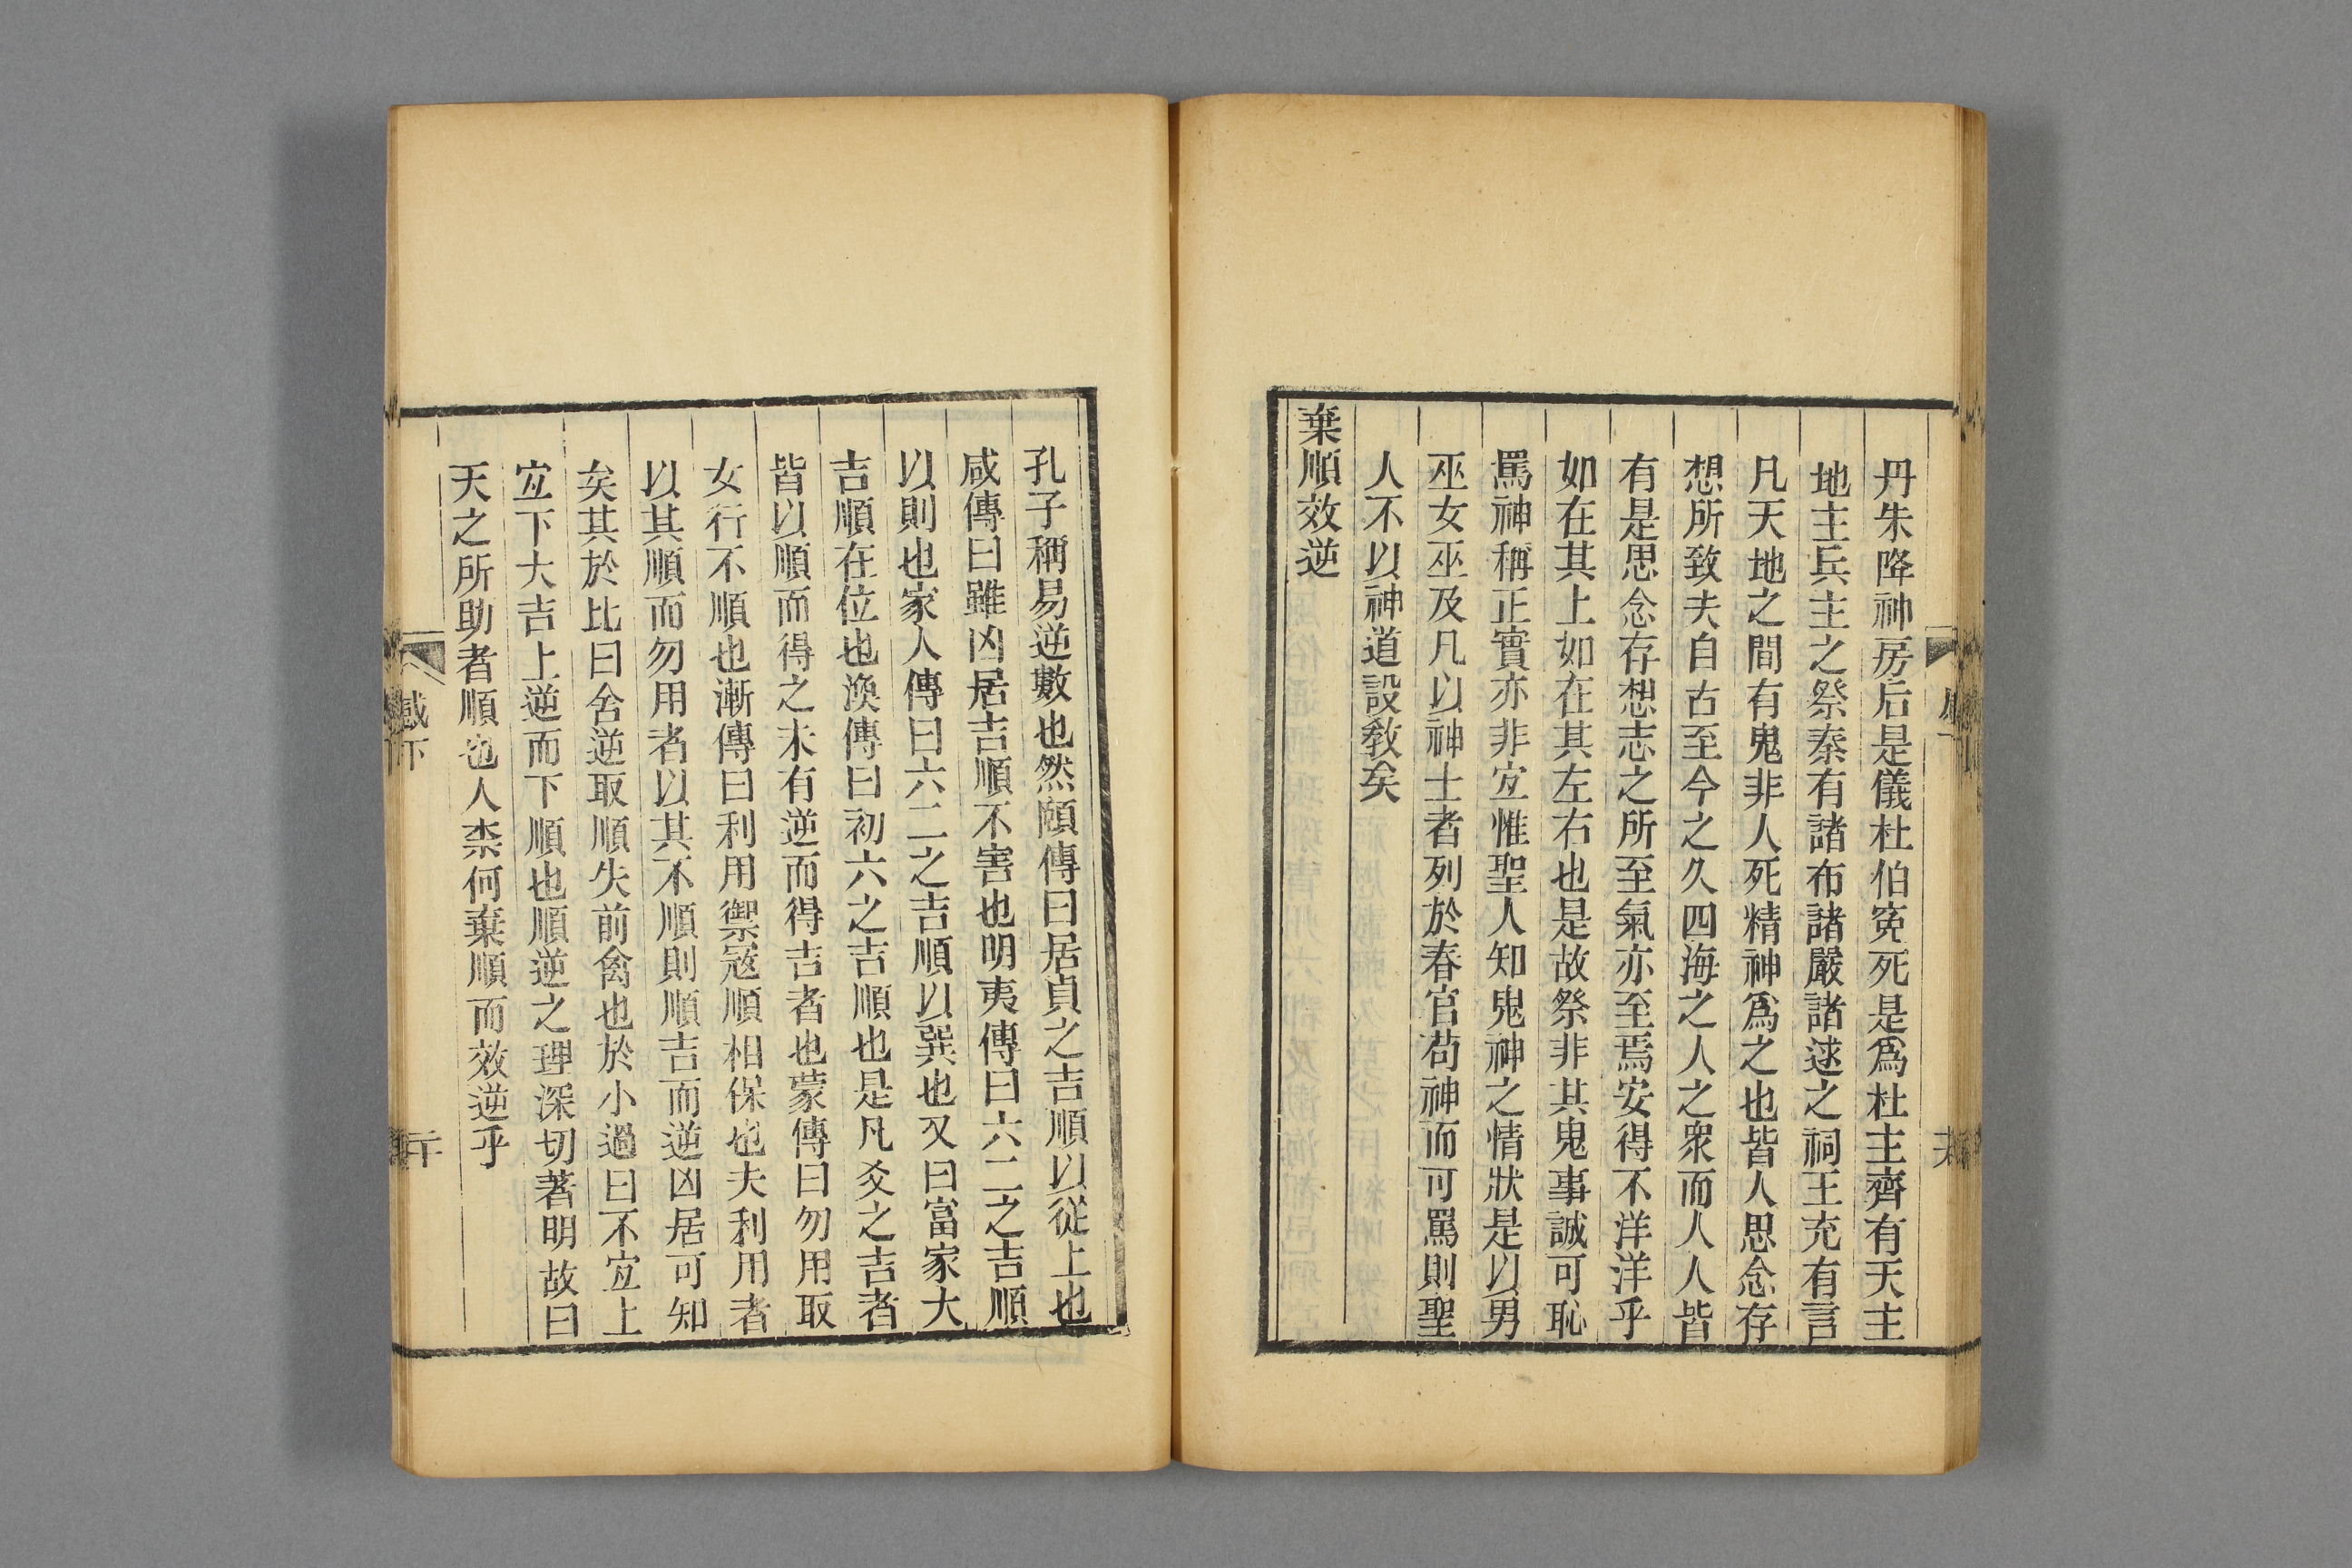 丹朱降神房后是儀杜伯寃死是爲杜主齊有天主
地主兵主之祭秦有諸布諸嚴諸逑之祠王充有言
凡天地之間有鬼非人死精神爲之也皆人思念存
想所致夫自古至今之久四海之人之衆而人人皆
有是思念存想志之所至氣亦至焉安得不洋洋乎
如在其上如在其左右也是故祭非其鬼事誠可恥
罵神稱正實亦非宐惟聖人知鬼神之情狀是以男
巫女巫及凡以神士者列於春官苟神而可罵則聖
人不以神道設敎矣
棄順效逆
孔子稱易逆數也然頤傳曰居貞之吉順以從上也
咸傳曰雖凶居吉順不害也明夷傳曰六二之吉順
以則也家人傳曰六二之吉順以巽也又曰富家大
吉順在位也渙傳曰初六之吉順也是凡爻之吉者
皆以順而得之未有逆而得吉者也蒙傳曰勿用取
女行不順也漸傳曰利用禦寇順相保也夫利用者
以其順而勿用者以其不順則順吉而逆凶居可知
矣其於比曰舍逆取順失前禽也於小過曰不宐上
宐下大吉上逆而下順也順逆之理深切著明故曰
天之所助者順也人柰何棄順而效逆乎
下